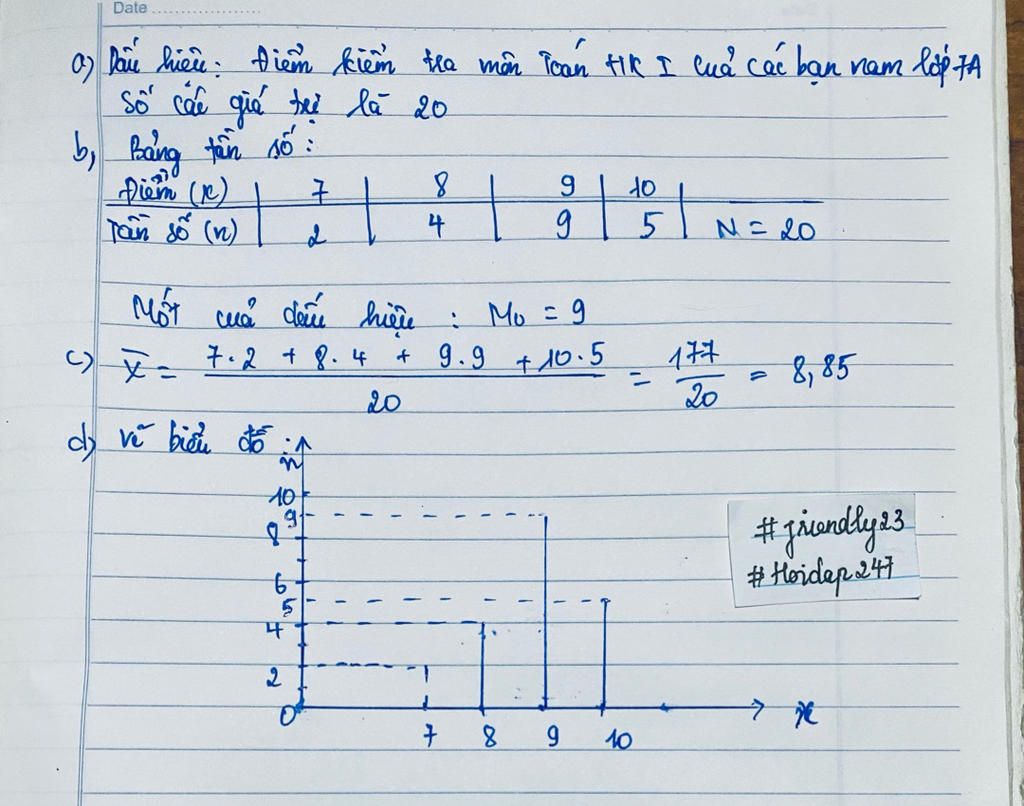 Date
a) Dấu hiệu: Điểm kiểm tra môn Toán HK I của các bạn nam lớp 7A
Số các giá trị là 20
b, Bảng tần số:
Điểm (x) 7 8 9 10
Tần số (n) 2 4 9 5 N = 20
Mốt của dấu hiệu : M₀ = 9
c) X̄ = (7.2 + 8.4 + 9.9 + 10.5)/20 = 177/20 = 8,85
d) vẽ biểu đồ :
n
10
9
8
6
5
4
2
0
7 8 9 10 x
#friendly23
#Hoidap247